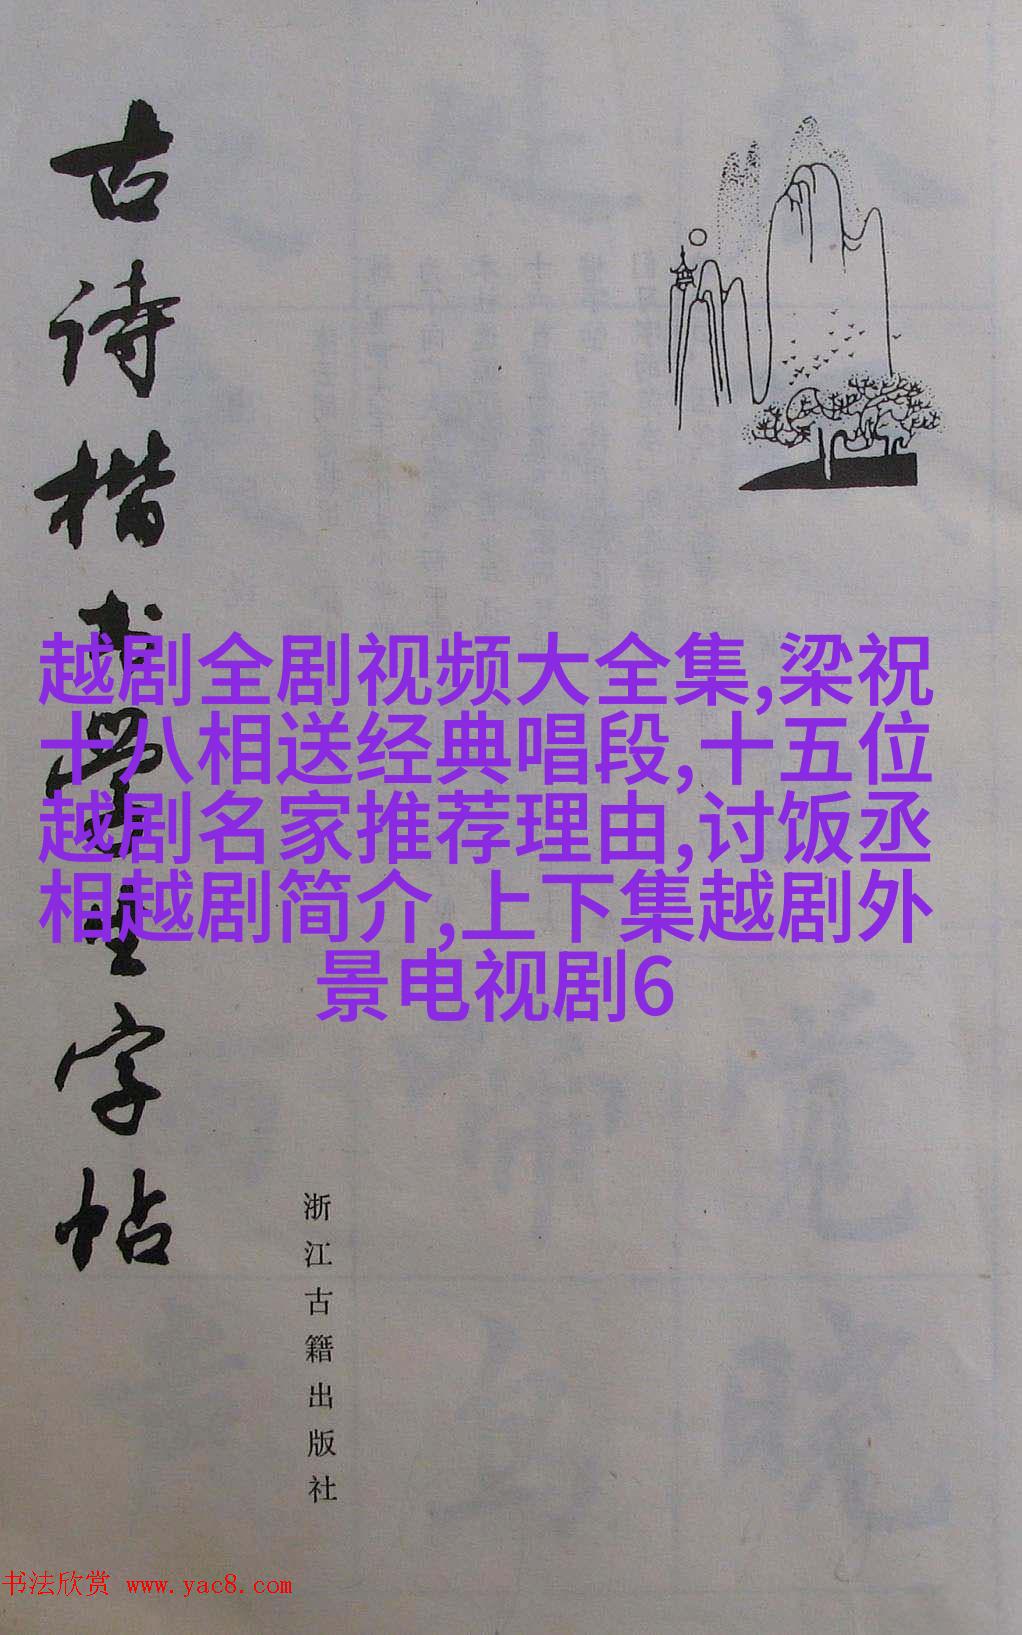 古诗楷书學生字帖
越剧全剧视频大全集,梁祝
十八相送经典唱段,十五位
越剧名家推荐理由,讨饭丞
相越剧简介,上下集越剧外
景电视剧6
浙江古籍出版社
书法欣赏 www.yac8.com